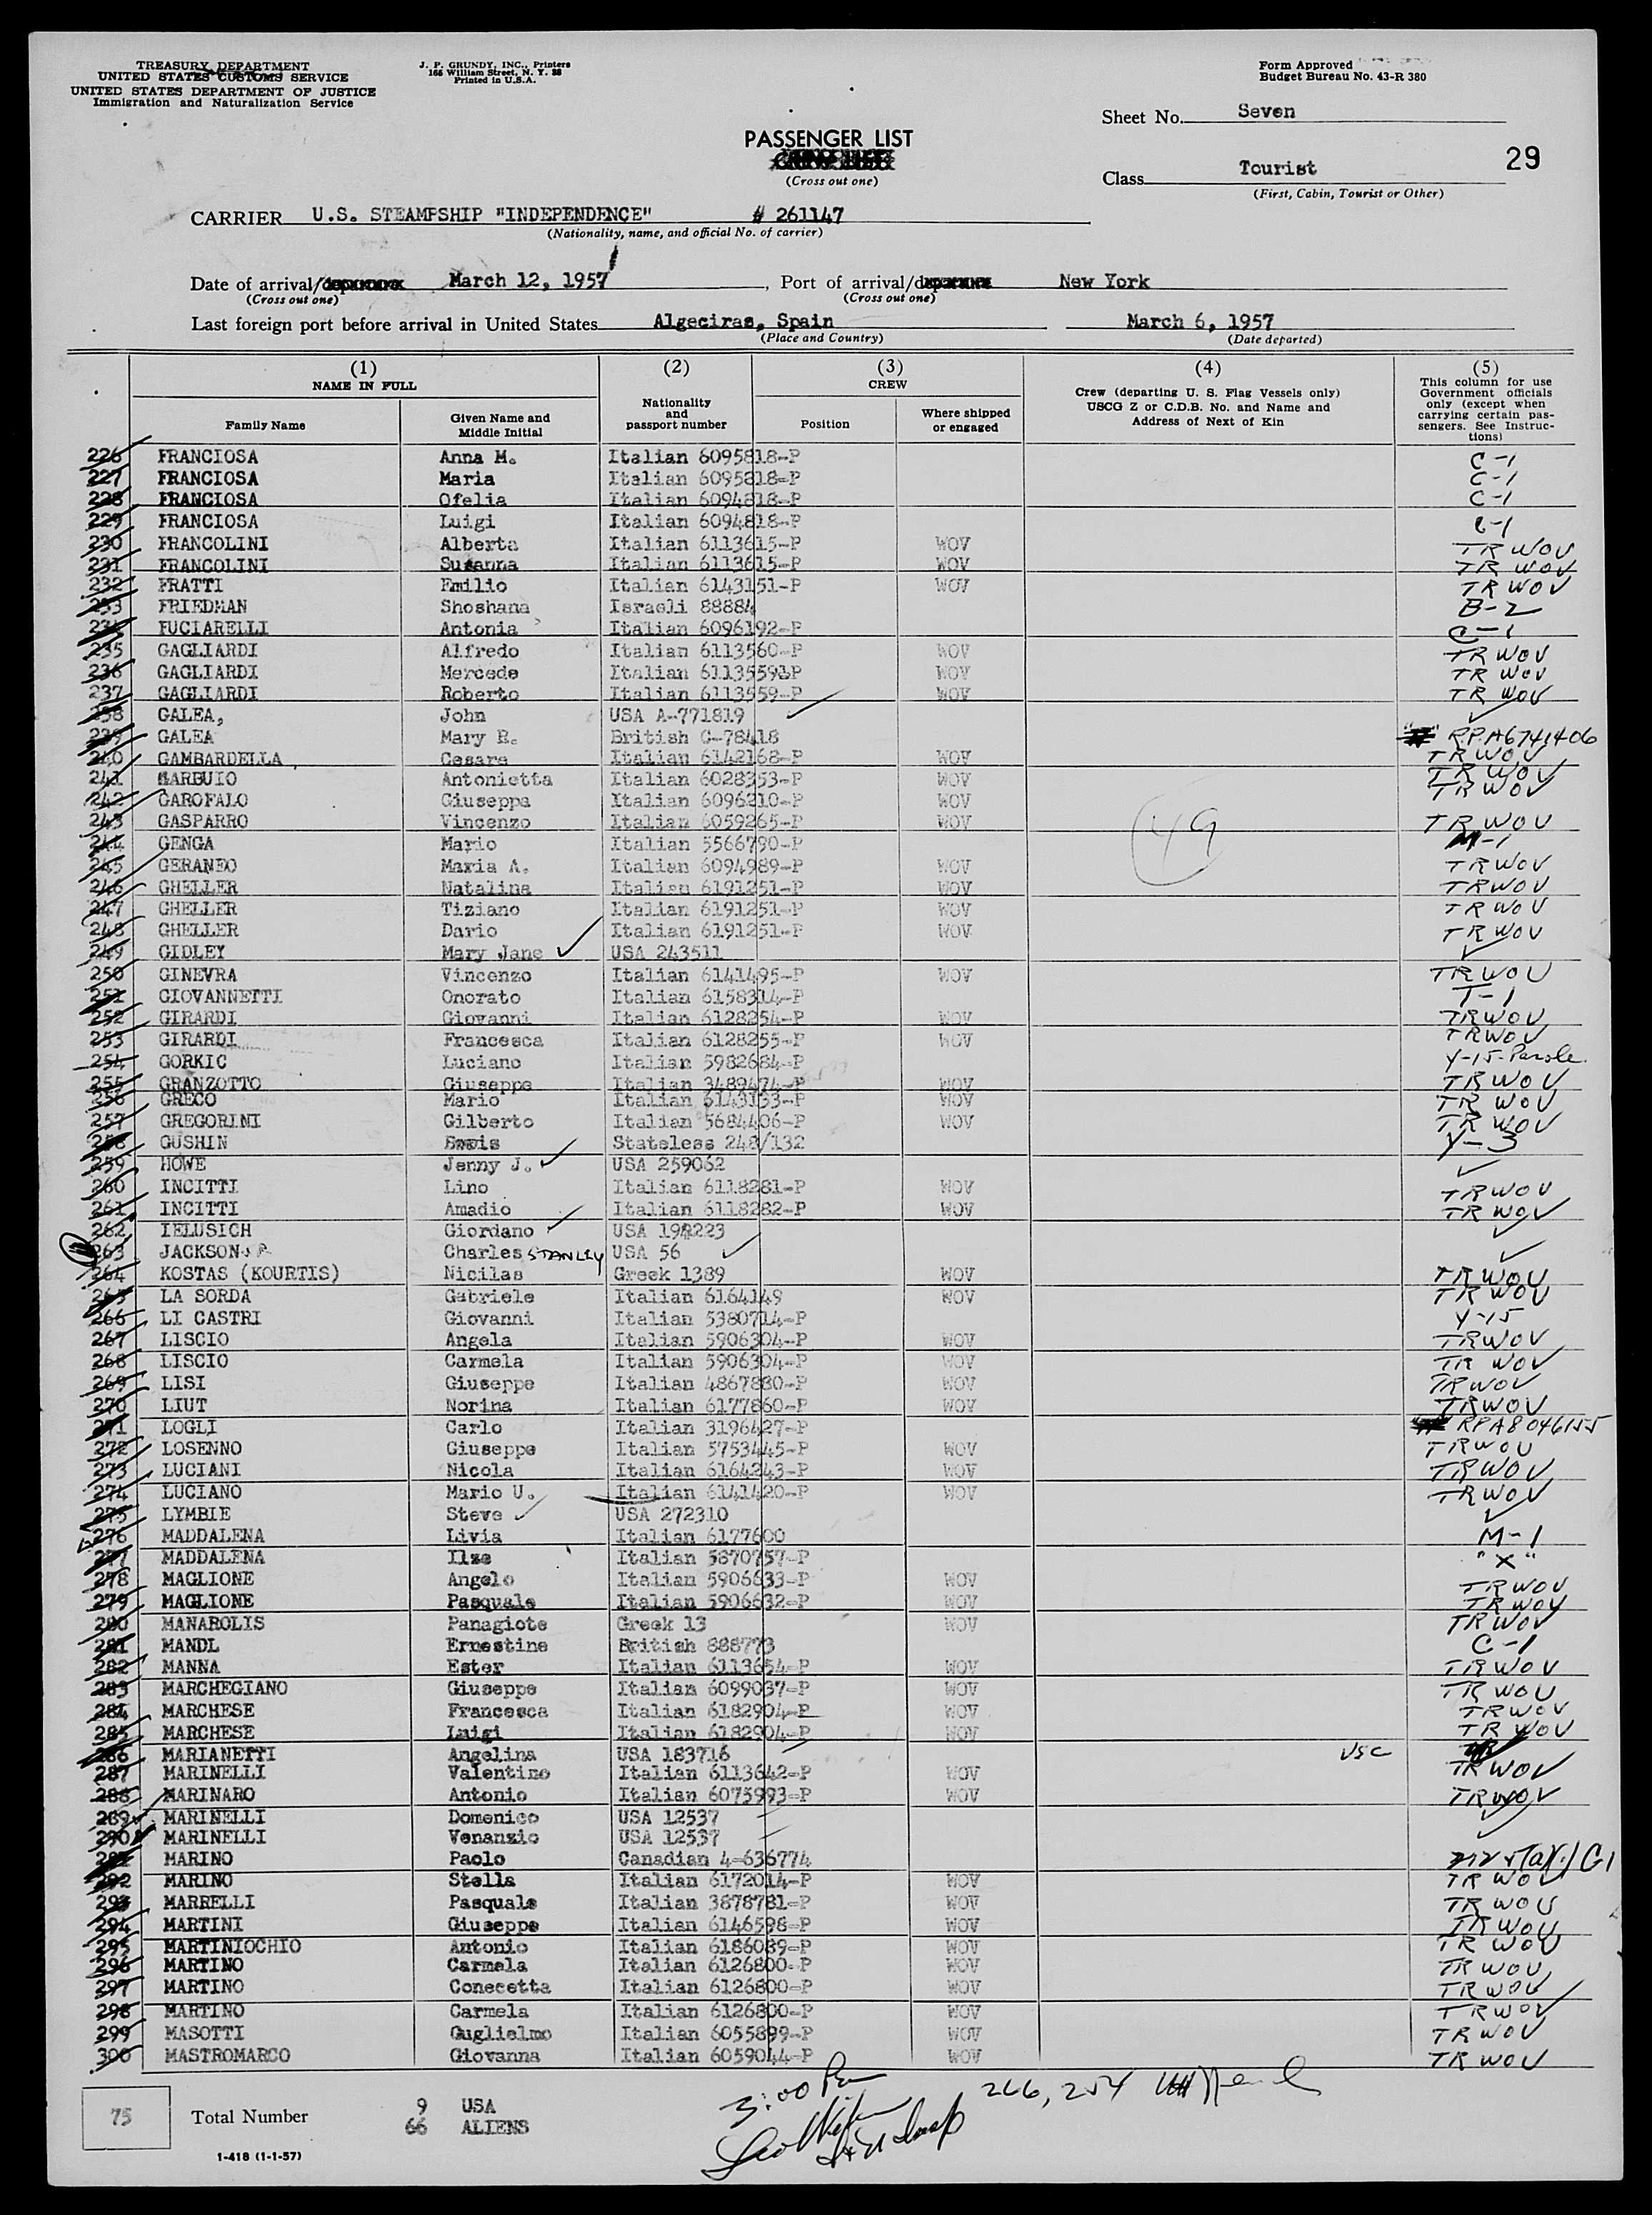 TREASURY DEPARTMENT
UNITED STATES CUSTOMS SERVICE
UNITED STATES DEPARTMENT OF JUSTICE
Immigration and Naturalization Service
J. P. GRUNDY, INC., Printers
166 William Street, N. Y. 38
Printed in U.S.A.
Form Approved
Budget Bureau No. 43-R 380
Sheet No. Seven
29
PASSENGER LIST
(Cross out one)
Class Tourist
(First, Cabin, Tourist or Other)
CARRIER U.S. STEAMPSHIP "INDEPENDENCE" # 261147
(Nationality, name, and official No. of carrier)
Date of arrival/ March 12, 1957, Port of arrival/ New York
(Cross out one) (Cross out one)
Last foreign port before arrival in United States Algeciras, Spain March 6, 1957
(Place and Country) (Date departed)
(1) NAME IN FULL
Family Name
Given Name and Middle Initial
(2) Nationality and passport number
(3) CREW
Position
Where shipped or engaged
(4) Crew (departing U. S. Flag Vessels only) USCG Z or C.D.B. No. and Name and Address of Next of Kin
(5) This column for use Government officials only (except when carrying certain passengers. See Instructions)
226 FRANCIOSA Anna M. Italian 6095818-P C-1
227 FRANCIOSA Maria Italian 6095818-P C-1
228 FRANCIOSA Ofelia Italian 6094818-P C-1
229 FRANCIOSA Luigi Italian 6094818-P C-1
230 FRANCOLINI Alberta Italian 6113615-P WOV TR WOV
231 FRANCOLINI Susanna Italian 6113615-P WOV TR WOV
232 FRATTI Emilio Italian 6143151-P WOV TR WOV
233 FRIEDMAN Shoshana Israeli 88884 B-2
234 FUCIARELLI Antonia Italian 6096192-P C-1
235 GAGLIARDI Alfredo Italian 6113560-P WOV TR WOV
236 GAGLIARDI Mercede Italian 6113559-P WOV TR WOV
237 GAGLIARDI Roberto Italian 6113559-P WOV TR WOV
238 GALEA, John USA A-771819
239 GALEA Mary R. British C-78418 RPA6741406
240 GAMBARDELLA Cesare Italian 6142168-P WOV TR WOV
241 GARBUIO Antonietta Italian 6028353-P WOV TR WOV
242 GAROFALO Giuseppe Italian 6096210-P WOV TR WOV
243 GASPARRO Vincenzo Italian 6059265-P WOV 49 TR WOV
244 GENGA Mario Italian 5566790-P M-1
245 GERANEO Maria A. Italian 6094989-P WOV TR WOV
246 GHELLER Natalina Italian 6191251-P WOV TR WOV
247 GHELLER Tiziano Italian 6191251-P WOV TR WOV
248 GHELLER Dario Italian 6191251-P WOV TR WOV
249 GIDLEY Mary Jane USA 243511
250 GINEVRA Vincenzo Italian 6141495-P WOV TR WOV
251 GIOVANNETTI Onorato Italian 6158314-P T-1
252 GIRARDI Giovanni Italian 6128254-P WOV TR WOV
253 GIRARDI Francesca Italian 6128255-P WOV TR WOV
254 GORKIC Luciano Italian 5982684-P Y-15-Parole
255 GRANZOTTO Giuseppe Italian 3489474-P WOV TR WOV
256 GRECO Mario Italian 6143133-P WOV TR WOV
257 GREGORINI Gilberto Italian 5684406-P WOV TR WOV
258 GUSHIN Stateless 248/132 Y-3
259 HOWE Jenny J. USA 259062
260 INCITTI Lino Italian 6118281-P WOV TR WOV
261 INCITTI Amadio Italian 6118282-P WOV TR WOV
262 IELUSICH Giordano USA 198223
263 JACKSON JR Charles STANLEY USA 56
264 KOSTAS (KOURTIS) Nicilas Greek 1389 WOV TR WOV
265 LA SORDA Gabriele Italian 6164149 WOV TR WOV
266 LI CASTRI Giovanni Italian 5380714-P Y-15
267 LISCIO Angela Italian 5906304-P WOV TR WOV
268 LISCIO Carmela Italian 5906304-P WOV TR WOV
269 LISI Giuseppe Italian 4867880-P WOV TR WOV
270 LIUT Norina Italian 6177860-P WOV TR WOV
271 LOGLI Carlo Italian 3196427-P RPA8046155
272 LOSENNO Giuseppe Italian 5753445-P WOV TR WOV
273 LUCIANI Nicola Italian 6164243-P WOV TR WOV
274 LUCIANO Mario U. Italian 6141420-P WOV TR WOV
275 LYMBIE Steve USA 272310
276 MADDALENA Livia Italian 6177600 M-1
277 MADDALENA Ilse Italian 5870757-P "X"
278 MAGLIONE Angelo Italian 5906633-P WOV TR WOV
279 MAGLIONE Pasquale Italian 5906632-P WOV TR WOV
280 MANAROLIS Panagiote Greek 13 WOV TR WOV
281 MANDL Ernestine British 888773 C-1
282 MANNA Ester Italian 6113654-P WOV TR WOV
283 MARCHEGIANO Giuseppe Italian 6099037-P WOV TR WOV
284 MARCHESE Francesca Italian 6182904-P WOV TR WOV
285 MARCHESE Luigi Italian 6182904-P WOV TR WOV
286 MARIANETTI Angelina USA 183716 USC
287 MARINELLI Valentino Italian 6113642-P WOV TR WOV
288 MARINARO Antonio Italian 6075993-P WOV TR WOV
289 MARINELLI Domenico USA 12537
290 MARINELLI Venanzio USA 12537
291 MARINO Paolo Canadian 4-636774
292 MARINO Stella Italian 6172014-P WOV TR WOV
293 MARRELLI Pasquale Italian 3878781-P WOV TR WOV
294 MARTINI Giuseppe Italian 6146598-P WOV TR WOV
295 MARTINIOCHIO Antonio Italian 6186089-P WOV TR WOV
296 MARTINO Carmela Italian 6126800-P WOV TR WOV
297 MARTINO Conecetta Italian 6126800-P WOV TR WOV
298 MARTINO Carmela Italian 6126800-P WOV TR WOV
299 MASOTTI Guglielmo Italian 6055899-P WOV TR WOV
300 MASTROMARCO Giovanna Italian 6059044-P WOV TR WOV
75 Total Number 9 USA
66 ALIENS
3:00 Pm
266, 254
1-418 (1-1-57)